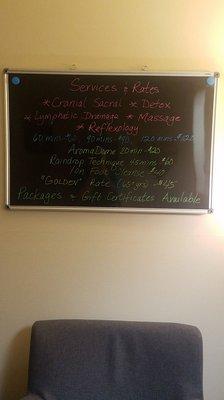 Services & Rates
* Cranial Sacral * Detox
* Lymphatic Drainage * Massage
* Reflexology
60 mins- 90 mins- 120 mins-
AromaDome 20 min-$20
Raindrop Technique 45mins $60
Ion Foot Cleanse
"GOLDEN" Rate (65+yrs) -$45
Packages & Gift Certificates Available